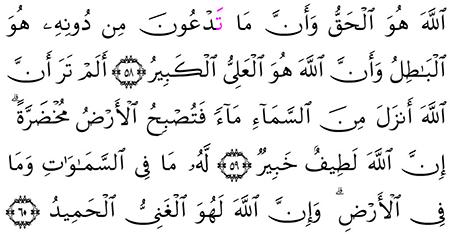 ٱللَّهَ هُوَ ٱلْحَقُّ وَأَنَّ مَا تَدْعُونَ مِن دُونِهِۦ هُوَ
ٱلْبَٰطِلُ وَأَنَّ ٱللَّهَ هُوَ ٱلْعَلِىُّ ٱلْكَبِيرُ ٥٨ أَلَمْ تَرَ أَنَّ
ٱللَّهَ أَنزَلَ مِنَ ٱلسَّمَآءِ مَآءً فَتُصْبِحُ ٱلْأَرْضُ مُخْضَرَّةً ۗ
إِنَّ ٱللَّهَ لَطِيفٌ خَبِيرٌ ٥٩ لَّهُۥ مَا فِى ٱلسَّمَٰوَٰتِ وَمَا
فِى ٱلْأَرْضِ ۗ وَإِنَّ ٱللَّهَ لَهُوَ ٱلْغَنِىُّ ٱلْحَمِيدُ ٦٠